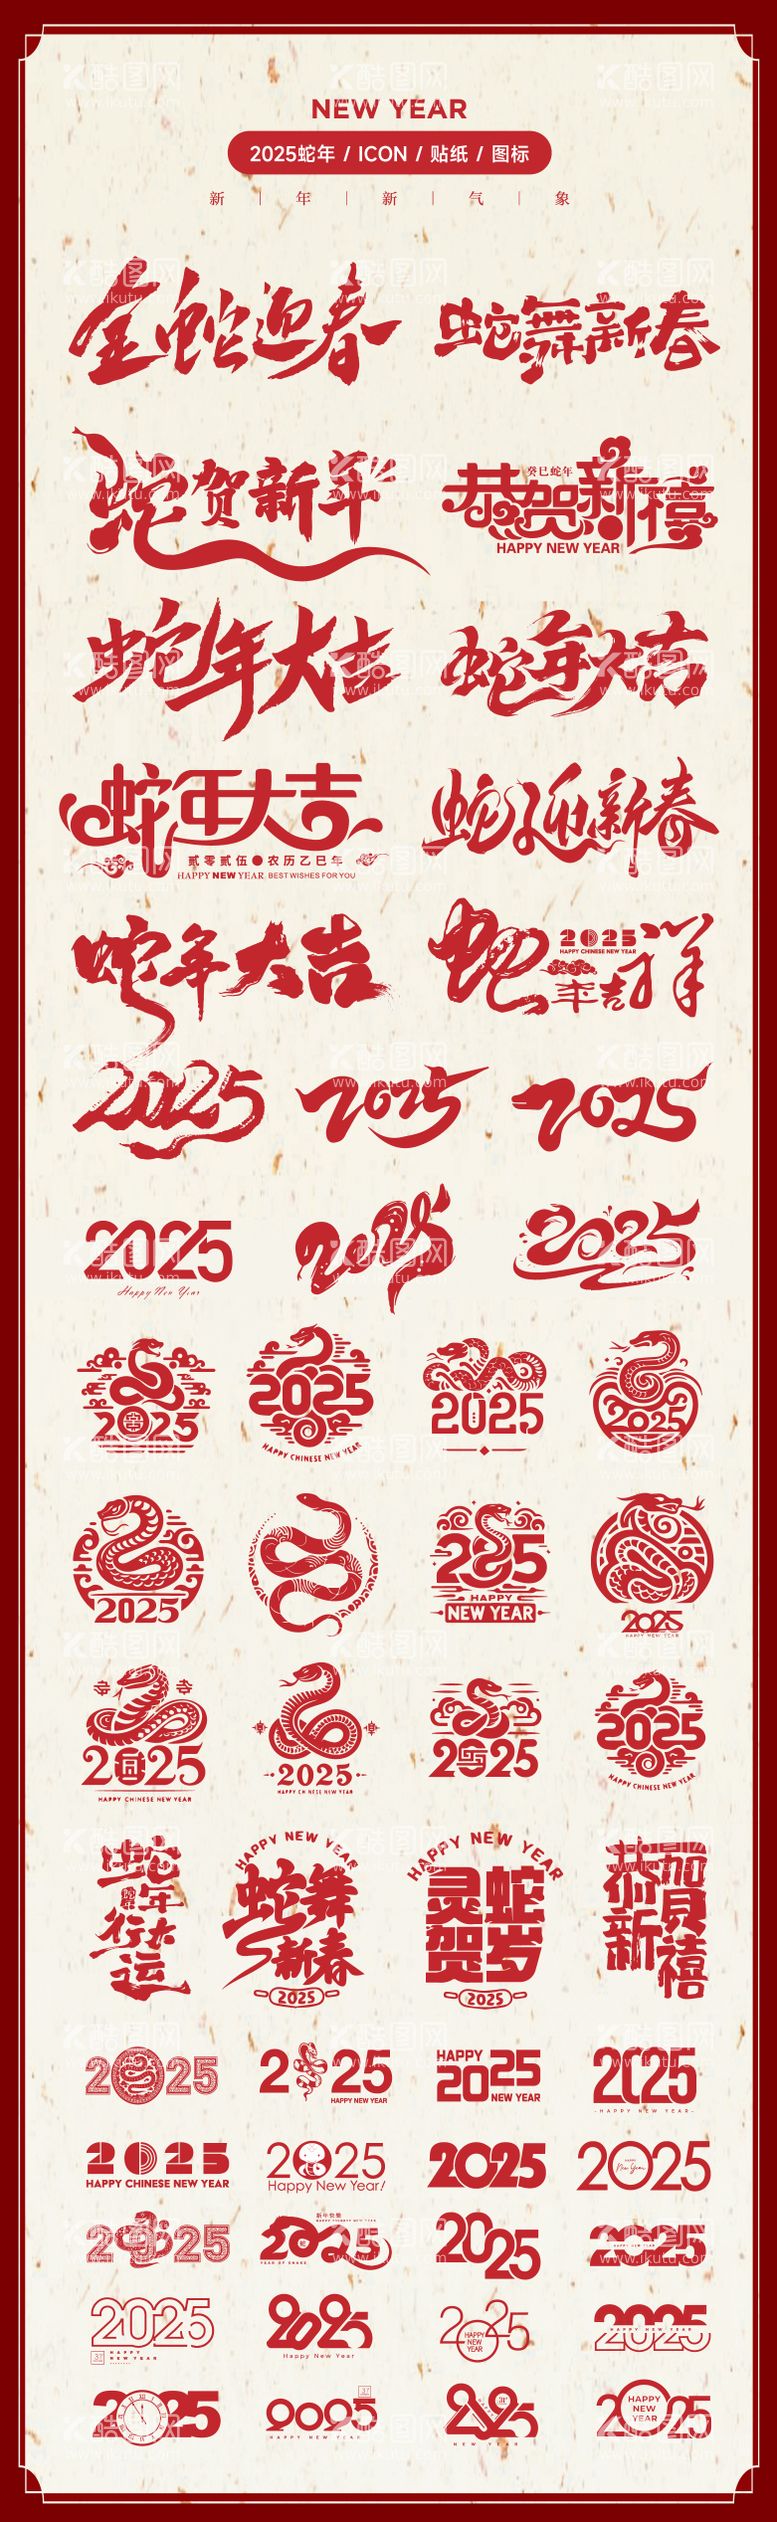 NEW YEAR
2025蛇年 / ICON / 贴纸 / 图标
新 | 年 | 新 | 气 | 象
金蛇迎春
蛇舞新春
蛇贺新年
癸巳蛇年
恭贺新禧
HAPPY NEW YEAR
蛇年大吉
蛇年大吉
蛇年大吉
贰零贰伍●农历乙巳年
HAPPY NEW YEAR BEST WISHES FOR YOU
蛇迎新春
蛇年大吉
蛇年吉祥
2025
HAPPY CHINESE NEW YEAR
2025
2025
2025
2025
Happy New Year
2025
2025
2025
2025
HAPPY CHINESE NEW YEAR
2025
2025
2025
2025
HAPPY
NEW YEAR
2025
HAPPY NEW YEAR
2025
HAPPY CHINESE NEW YEAR
2025
HAPPY CHINESE NEW YEAR
2025
2025
HAPPY CHINESE NEW YEAR
蛇年行大运
HAPPY NEW YEAR
蛇舞新春
2025
HAPPY NEW YEAR
灵蛇贺岁
2025
恭贺新禧
2025
2025
HAPPY NEW YEAR
HAPPY
2025
NEW YEAR
2025
-HAPPY NEW YEAR-
2025
HAPPY CHINESE NEW YEAR
2025
Happy New Year!
2025
2025
HAPPY
New Year
2025
新年快乐
2025
YEAR OF SNAKE
2025
2025
HAPPY NEW YEAR
2025
HAPPY
NEW YEAR
2025
Happy New Year
2025
HAPPY
NEW
YEAR
2025
HAPPY NEW YEAR
2025
2025
HAPPY NEW YEAR
2025
NEW YEAR
2025
HAPPY
NEW
YEAR
酷图网
www.ikutu.com